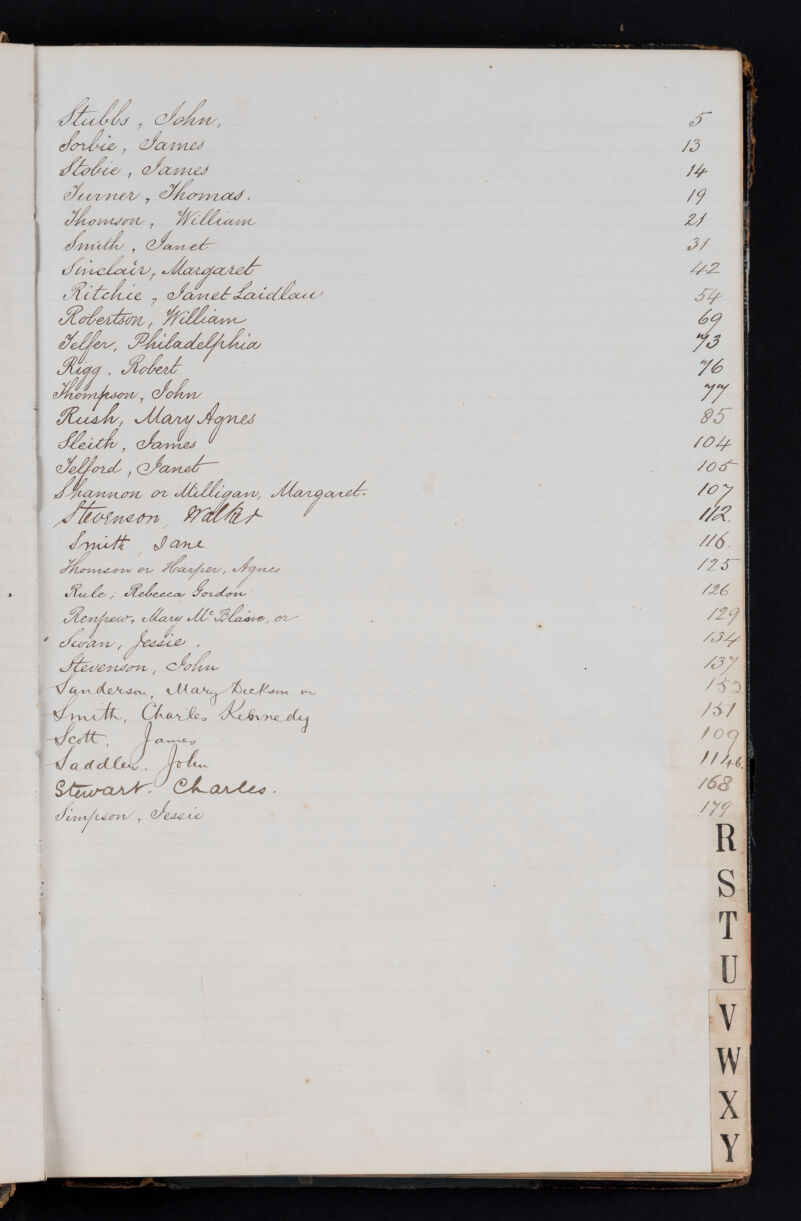 Stubbs, John, 5
Sorbie, James 13
Stobie, James 14
Turner, Thomas. 19
Thomson, William 21
Smith, Janet 31
Sinclair, Margaret 42
Ritchie, Janet Laidlaw 54
Robertson, William 69
Telfer, Philadelphia 73
Rigg, Robert 76
Thompson, John 77
Rush, Mary Agnes 85
Sleith, James 104
Telford, Janet 105
Shannon or Milligan, Margaret. 107
Stevenson, Walker 112.
Smith Jane 116.
Thomson or Harper, Agnes 125
Rule, Rebecca Gordon 126
Renfrew, Mary McBlaine, or 129
Swan, Jessie. 134
Stevenson, John 137
Sanderson, Mary Dickson or
Smith, Charles Kennedy 151
Scott, James 109
Saddler, John 1146.
Stewart. Charles. 168
Simpson, Jessie 179
R
S
T
U
V
W
X
Y